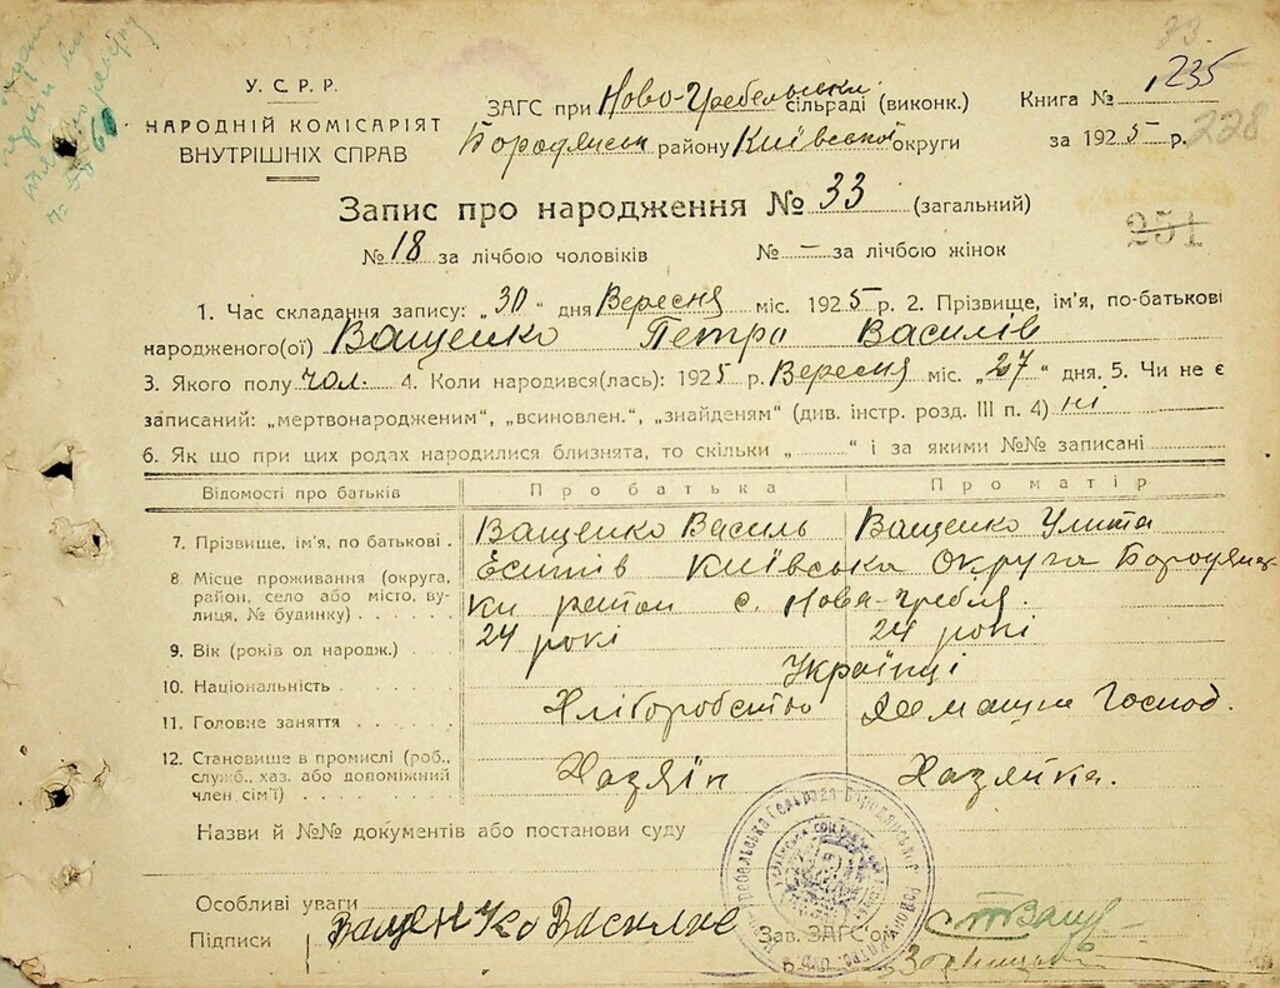 33.
У. С. Р. Р.
НАРОДНІЙ КОМІСАРІЯТ
ВНУТРІШНІХ СПРАВ
ЗАГС при Ново-Гребельській сільраді (виконк.)
Бородянськ району Київської округи
Книга № 1235
за 1925 р.
228
Запис про народження № 33 (загальний)
251
№ 18 за лічбою чоловіків № — за лічбою жінок
1. Час складання запису: „30“ дня Вересня міс. 1925 р. 2. Прізвище, ім'я, по-батькові
народженого(ої) Ващенко Петро Василів
3. Якого полу чол. 4. Коли народився(лась): 1925 р. Вересня міс. „27“ дня. 5. Чи не є
записаний: „мертвонародженим“, „всиновлен.“, „знайденям“ (див. інстр. розд. III п. 4) ні
6. Як що при цих родах народилися близнята, то скільки „ “ і за якими №№ записані
Відомості про батьків Про батька Про матір
7. Прізвище, ім'я, по батькові . Ващенко Василь Ващенко Улита
8. Місце проживання (округа, Єситів Київська Округа Бородянс-
район, село або місто, ву- ки район с. Нова-Гребля.
лиця, № будинку)
9. Вік (років од народж.) 24 рокі 24 рокі
10. Національність Українці
11. Головне заняття Хліборобство Господ.
12. Становище в промислі (роб., Хазяїн Хазяйка.
служб., хаз. або допоміжний
член сім'ї)
Назви й №№ документів або постанови суду
Особливі уваги
Підписи Ващенко Зав. ЗАГС'ом